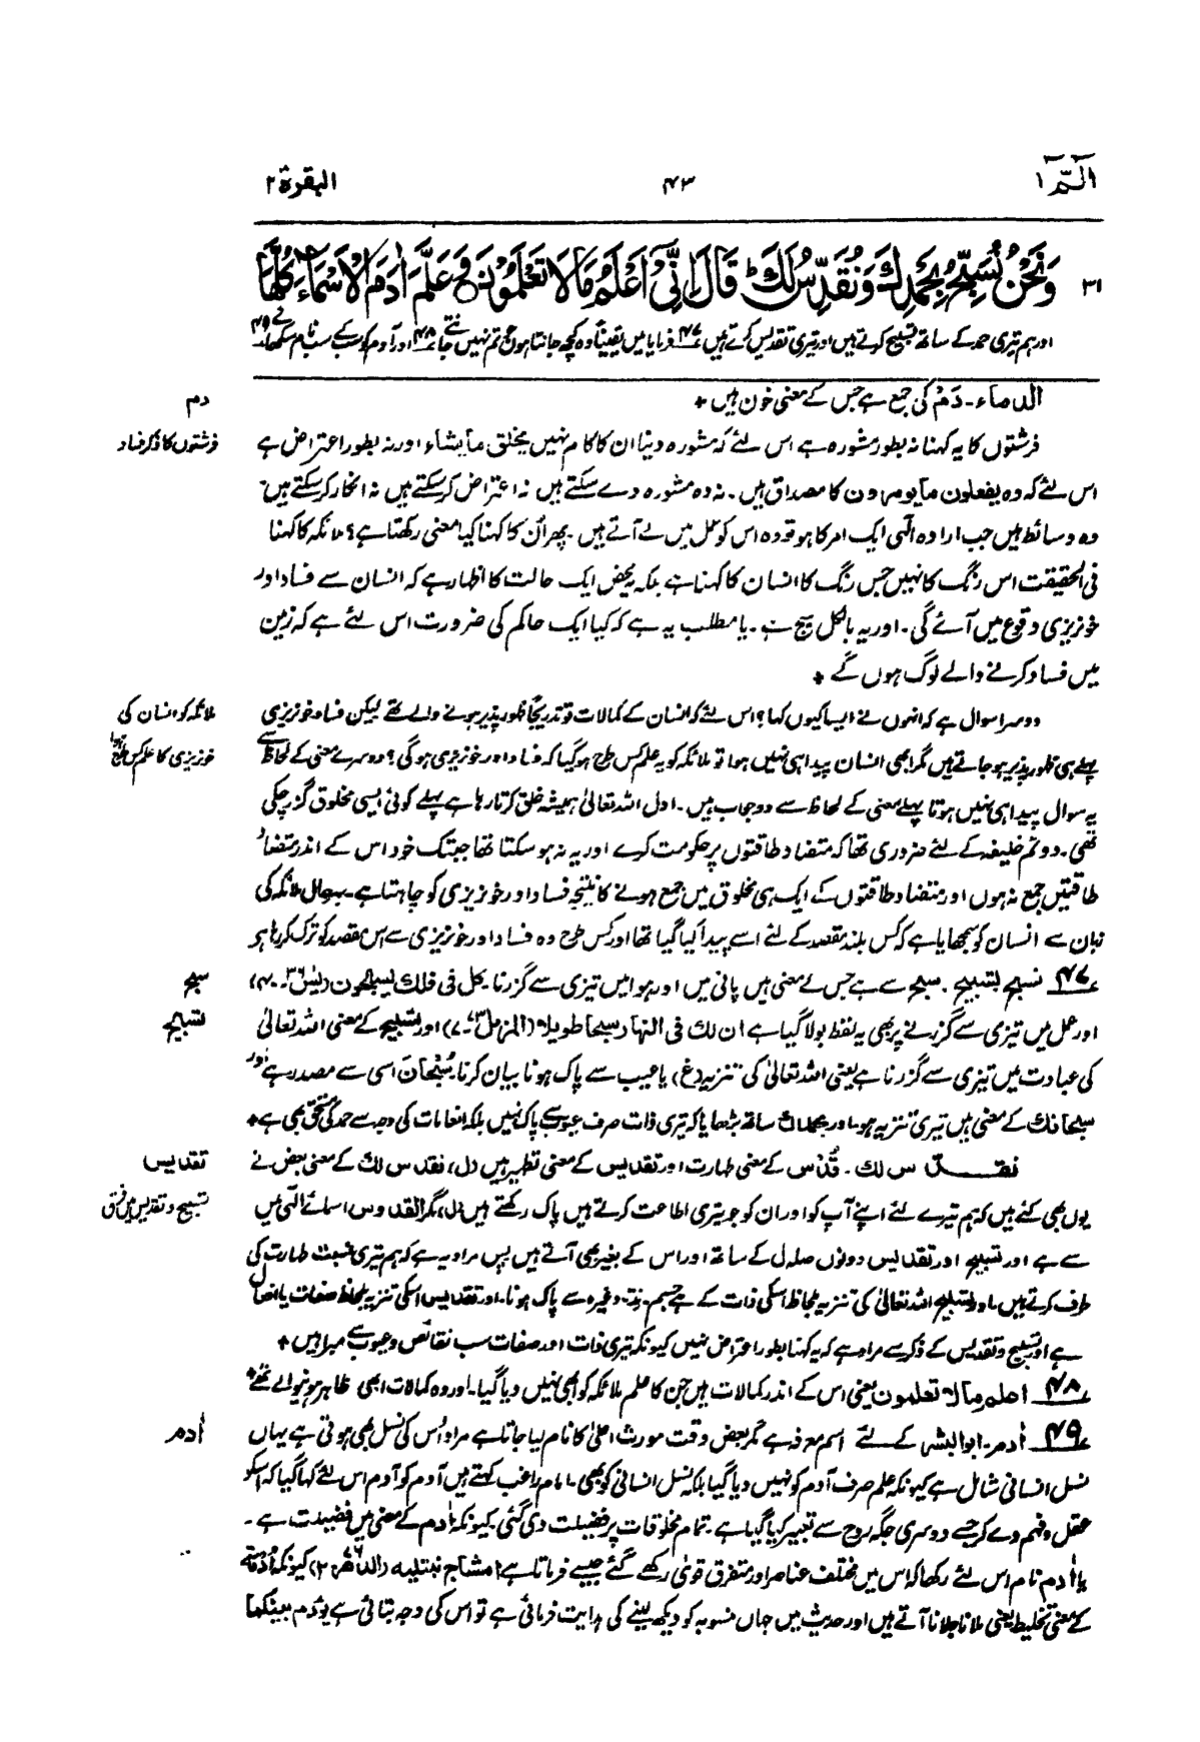 الٓمّٓ ۱
۴۳
البقرة ۲
۳۱
وَنَحْنُ نُسَبِّحُ بِحَمْدِكَ وَنُقَدِّسُ لَكَ ۚ قَالَ اِنِّىْٓ اَعْلَمُ مَا لَا تَعْلَمُوْنَ وَعَلَّمَ اٰدَمَ الْاَسْمَآءَ كُلَّهَا
اور ہم تیری حمد کے ساتھ تسبیح کرتے ہیں اور تیری تقدیس کرتے ہیں ۴۷ فرمایا میں یقیناً وہ کچھ جانتا ہوں جو تم نہیں جانتے ۴۸ اور آدم کو سب کے سب نام سکھا دئے ۴۹
الدماء۔ دَمٌ کی جمع ہے جس کے معنی خون ہیں +
دم
فرشتوں کا یہ کہنا نہ بطور مشورہ ہے اس لئے کہ مشورہ دینا ان کا کام نہیں یخلق مایشاء اور نہ بطور اعتراض ہے
فرشتوں کا ذکر فساد
اس لئے کہ وہ یفعلون مایومرون کا مصداق ہیں۔ نہ وہ مشورہ دے سکتے ہیں نہ اعتراض کر سکتے ہیں نہ انکار کر سکتے ہیں
وہ وسائط ہیں جب ارادہ الٰہی ایک امر کا ہو تو وہ اس کو عمل میں لے آتے ہیں۔ پھر اُن کا کہنا کیا معنی رکھتا ہے؟ ملائکہ کا کہنا
فی الحقیقت اس رنگ کا نہیں جس رنگ کا انسان کا کہنا ہے بلکہ یہ محض ایک حالت کا اظہار ہے کہ انسان سے فساد اور
خونریزی وقوع میں آئے گی۔ اور یہ بالکل سچ ہے۔ یا مطلب یہ ہے کہ کیا ایک حاکم کی ضرورت اس لئے ہے کہ زمین
میں فساد کرنے والے لوگ ہوں گے +
دوسرا سوال ہے کہ انہوں نے ایسا کیوں کہا؟ اس لئے کہ انسان کے کمالات تو تدریجاً ظہور پذیر ہونے والے تھے لیکن فساد خونریزی
ملائکہ کو انسان کی
پہلے ہی ظہور پذیر ہو جاتے ہیں مگر ابھی انسان پیدا ہی نہیں ہوا تو ملائکہ کو یہ علم کس طرح ہو گیا کہ فساد اور خونریزی ہو گی؟ دوسرے معنی کے لحاظ سے
خونریزی کا علم کس طرح ہوا
یہ سوال پیدا ہی نہیں ہوتا پہلے معنی کے لحاظ سے دو جواب ہیں۔ اول اللہ تعالیٰ ہمیشہ خلق کرتا رہا ہے پہلے کوئی ایسی مخلوق گزر چکی
تھی۔ دوم خلیفہ کے لئے ضروری تھا کہ متضاد طاقتوں پر حکومت کرے اور یہ نہ ہو سکتا تھا جبتک خود اس کے اندر متضاد
طاقتیں جمع نہ ہوں اور متضاد طاقتوں کے ایک ہی مخلوق میں جمع ہونے کا نتیجہ فساد اور خونریزی کو چاہتا ہے۔ بہرحال ملائکہ کی
زبان سے انسان کو سمجھایا ہے کہ کس بلند مقصد کے لئے اسے پیدا کیا گیا تھا اور کس طرح وہ فساد اور خونریزی سے اس مقصد کو ترک کر رہا ہے
۴۷ نسبح تسبیح۔ سبح سے ہے جس کے معنی ہیں پانی میں اور ہوا میں تیزی سے گزرنا۔ کل فی فلك یسبحون (یٰس ۳۶۔۴۰)
سبح
اور عمل میں تیزی سے گزرنے پر بھی یہ لفظ بولا گیا ہے ان لك فی النهار سبحا طویلا (المزمل ۷۳۔۷) اور تسبیح کے معنی اللہ تعالیٰ
تسبیح
کی عبادت میں تیزی سے گزرنا ہے یعنی اللہ تعالیٰ کی تنزیہ (غ) یا عیب سے پاک ہونا بیان کرنا۔ سُبْحَانَ اسی سے مصدر ہے اور
سبحانك کے معنی ہیں تیری تنزیہ ہو۔ اور بحمدك ساتھ بڑھایا کہ تیری ذات صرف عیوب سے پاک نہیں بلکہ انعامات کی وجہ سے حمد کی مستحق بھی ہے +
نقدس لك۔ قُدْس کے معنی طہارت اور تقدیس کے معنی تطہیر ہیں (ل)، نقدس لك کے معنی بعض نے
تقدیس
یوں بھی کئے ہیں کہ ہم تیرے لئے اپنے آپ کو اور ان کو جو تیری اطاعت کرتے ہیں پاک رکھتے ہیں (ل)، مگر القدوس اسمائے الٰہی میں
تسبیح و تقدیس میں فرق
سے ہے اور تسبیح اور تقدیس دونوں صلہ ل کے ساتھ اور اس کے بغیر بھی آتے ہیں پس مراد یہ ہے کہ ہم تیری نسبت طہارت کی
طرف کرتے ہیں۔ اور تسبیح اللہ تعالیٰ کی تنزیہ بلحاظ اسکی ذات کے ہے وغیرہ سے پاک ہونا۔ اور تقدیس اسکی تنزیہ بلحاظ صفات یا افعال
ہے اور تسبیح و تقدیس کے ذکر سے مراد ہے کہ یہ کہنا بطور اعتراض نہیں کیونکہ تیری ذات اور صفات سب نقائص و عیوب سے مبرا ہیں +
۴۸ اعلم مالا تعلمون یعنی اس کے اندر کمالات ہیں جن کا علم ملائکہ کو بھی نہیں دیا گیا۔ اور وہ کمالات ابھی ظاہر ہونیوالے تھے +
۴۹ اٰدم۔ ابوالبشر کے لئے اسم معرفہ ہے مگر بعض وقت مورث اعلیٰ کا نام لیا جاتا ہے مراد اُس کی نسل بھی ہوتی ہے یہاں
اٰدم
نسل انسانی شامل ہے کیونکہ علم صرف آدم کو نہیں دیا گیا بلکہ نسل انسانی کو بھی۔ امام راغب کہتے ہیں آدم کو آدم اس لئے کہا گیا کہ اسکو
عقل و فہم دے کر جسے دوسری جگہ روح سے تعبیر کیا گیا ہے۔ تمام مخلوقات پر فضیلت دی گئی۔ کیونکہ اٰدم کے معنی ہیں فضیلت ہے۔
یا اٰدم نام اس لئے رکھا کہ اس میں مختلف عناصر اور متفرق قویٰ رکھے گئے جیسے فرماتا ہے امشاج نبتلیه (الدھر ۷۶۔۲) کیونکہ اُدْمَة
کے معنی تخلیط یعنی ملانا جلانا آتے ہیں اور حدیث میں جہاں منسوبہ کو دیکھ لینے کی ہدایت فرمائی ہے تو اس کی وجہ بتائی ہے یؤدم بینکما